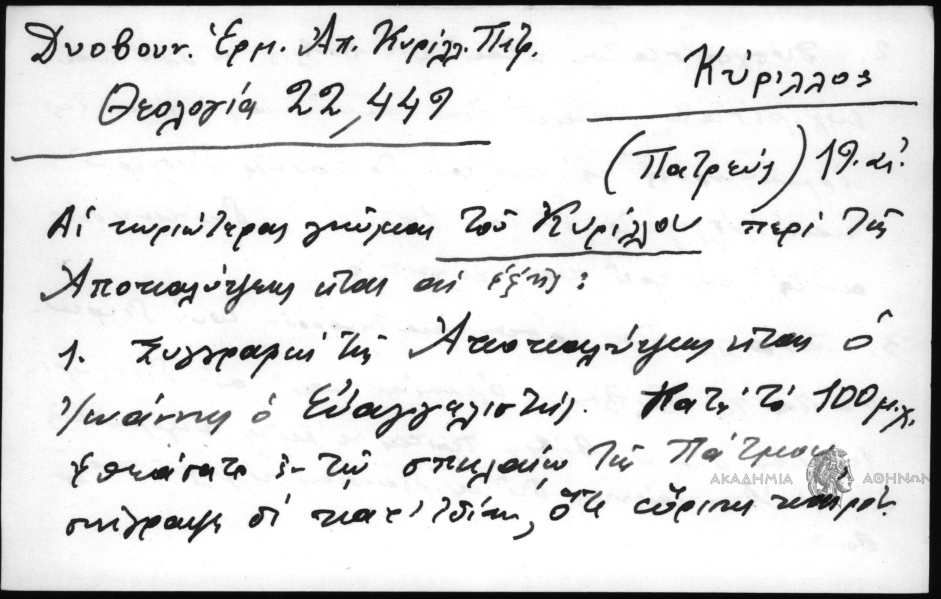 Δυοβουν. Ἑρμ. Ἀπ. Κυρίλλ. Πατρ.
Θεολογία 22, 449
Κύριλλος
(Πατρεύς) 19. αἰ.
Αἱ κυριώτεραι γνῶμαι τοῦ Κυρίλλου περὶ τῆς
Ἀποκαλύψεως εἶναι αἱ ἑξῆς:
1. Συγγραφεὺς τῆς Ἀποκαλύψεως εἶναι ὁ
Ἰωάννης ὁ Εὐαγγελιστής. Κατὰ τὸ 100 μ.χ.
ἐν τῷ σπηλαίῳ τῆς Πάτμου
συνέγραψε δὲ κατ' ἰδίαν, ὅτε εὕρισκε καιρόν.
ΑΚΑΔΗΜΙΑ ΑΘΗΝΩΝ